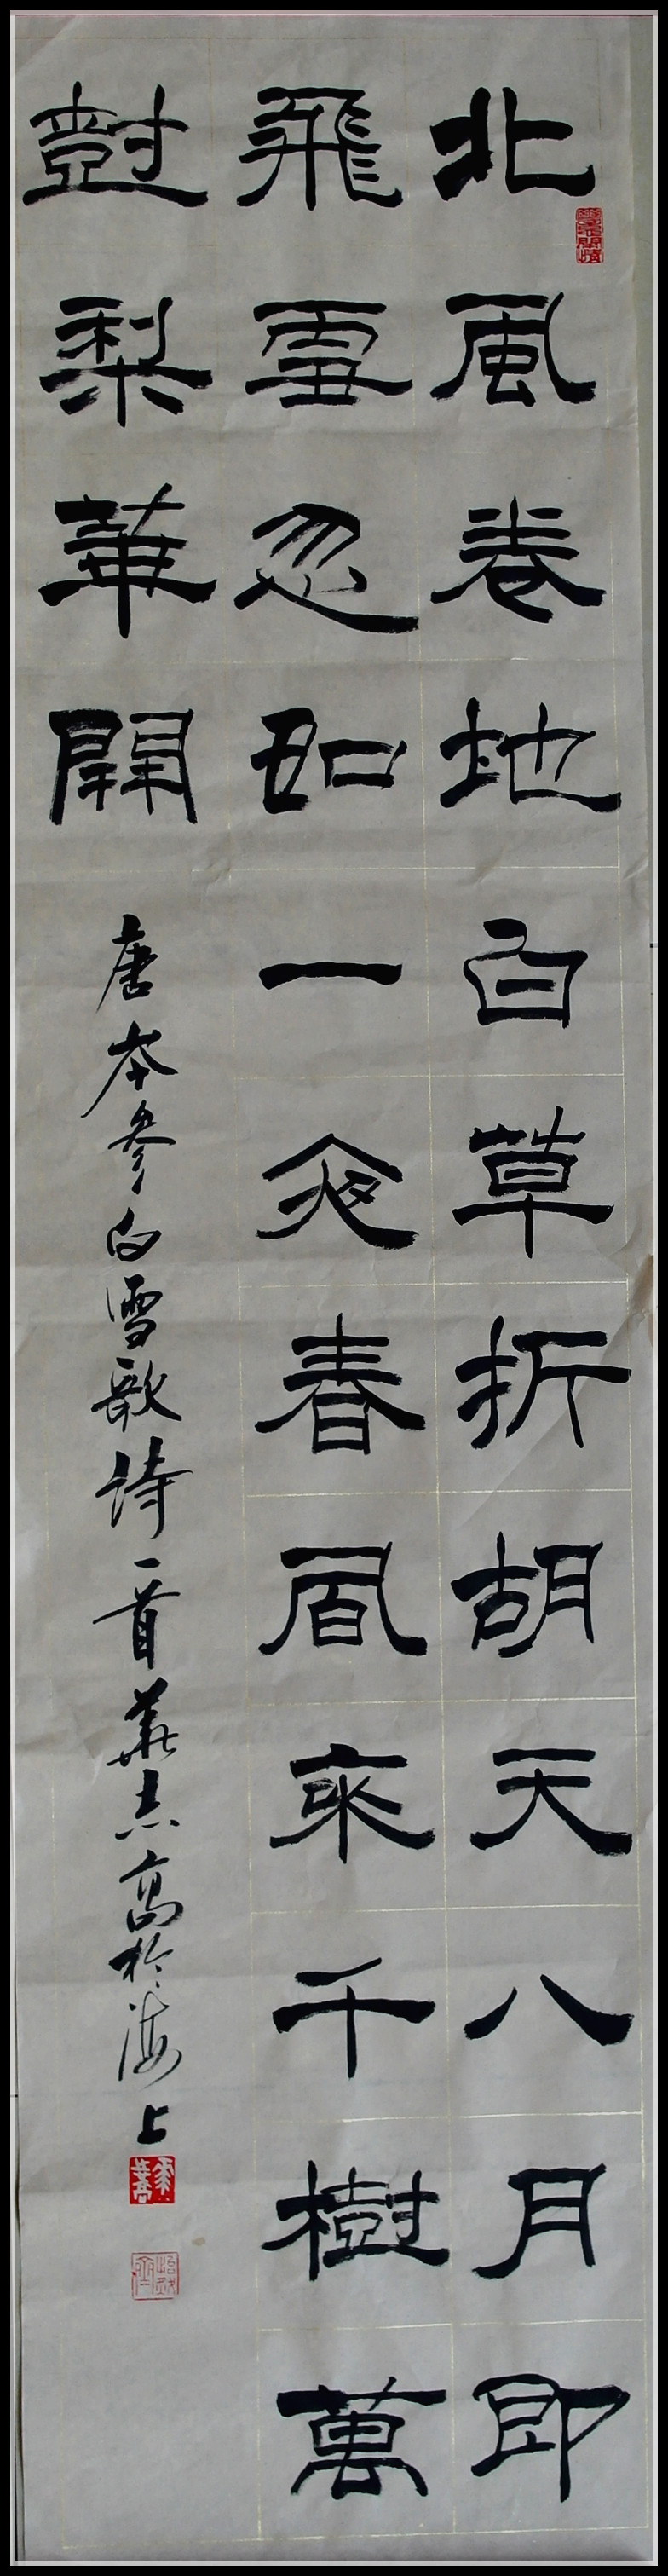 北風卷地白草折胡天八月即
飛雪忽如一夜春風來千樹萬
樹梨華開
唐岑參白雪歌詩一首 志高於海上